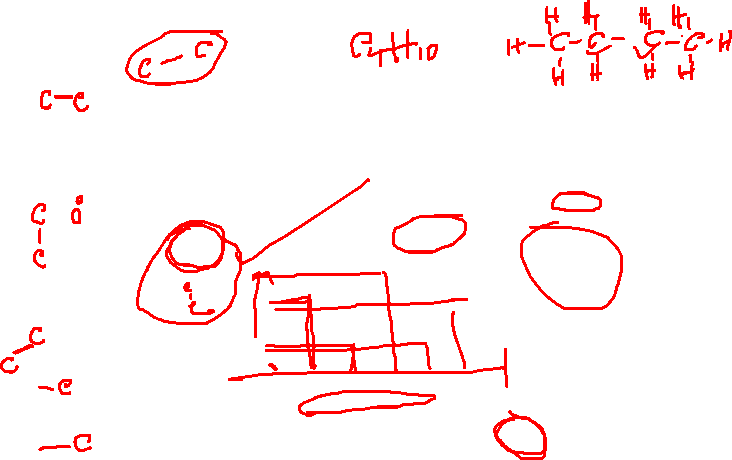 C-C C4H10
H H H H
H-C-C-C-C-H
H H H H
C-C
C
C
C
C
-C
-C